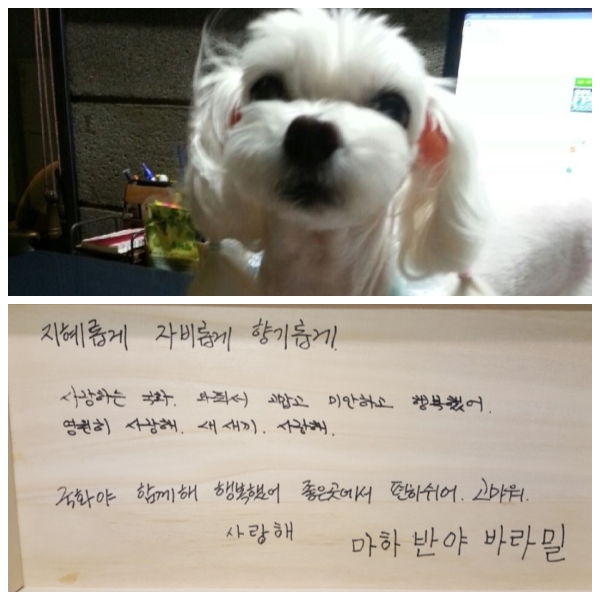 지혜롭게 자비롭게 향기롭게.
사랑하는 국화. 와줘서 고맙고 미안하고 행복했어.
영원히 사랑해. 내 새끼. 사랑해.
국화야 함께해 행복했어 좋은곳에서 편히쉬어. 고마워.
사랑해
마하 반야 바라밀